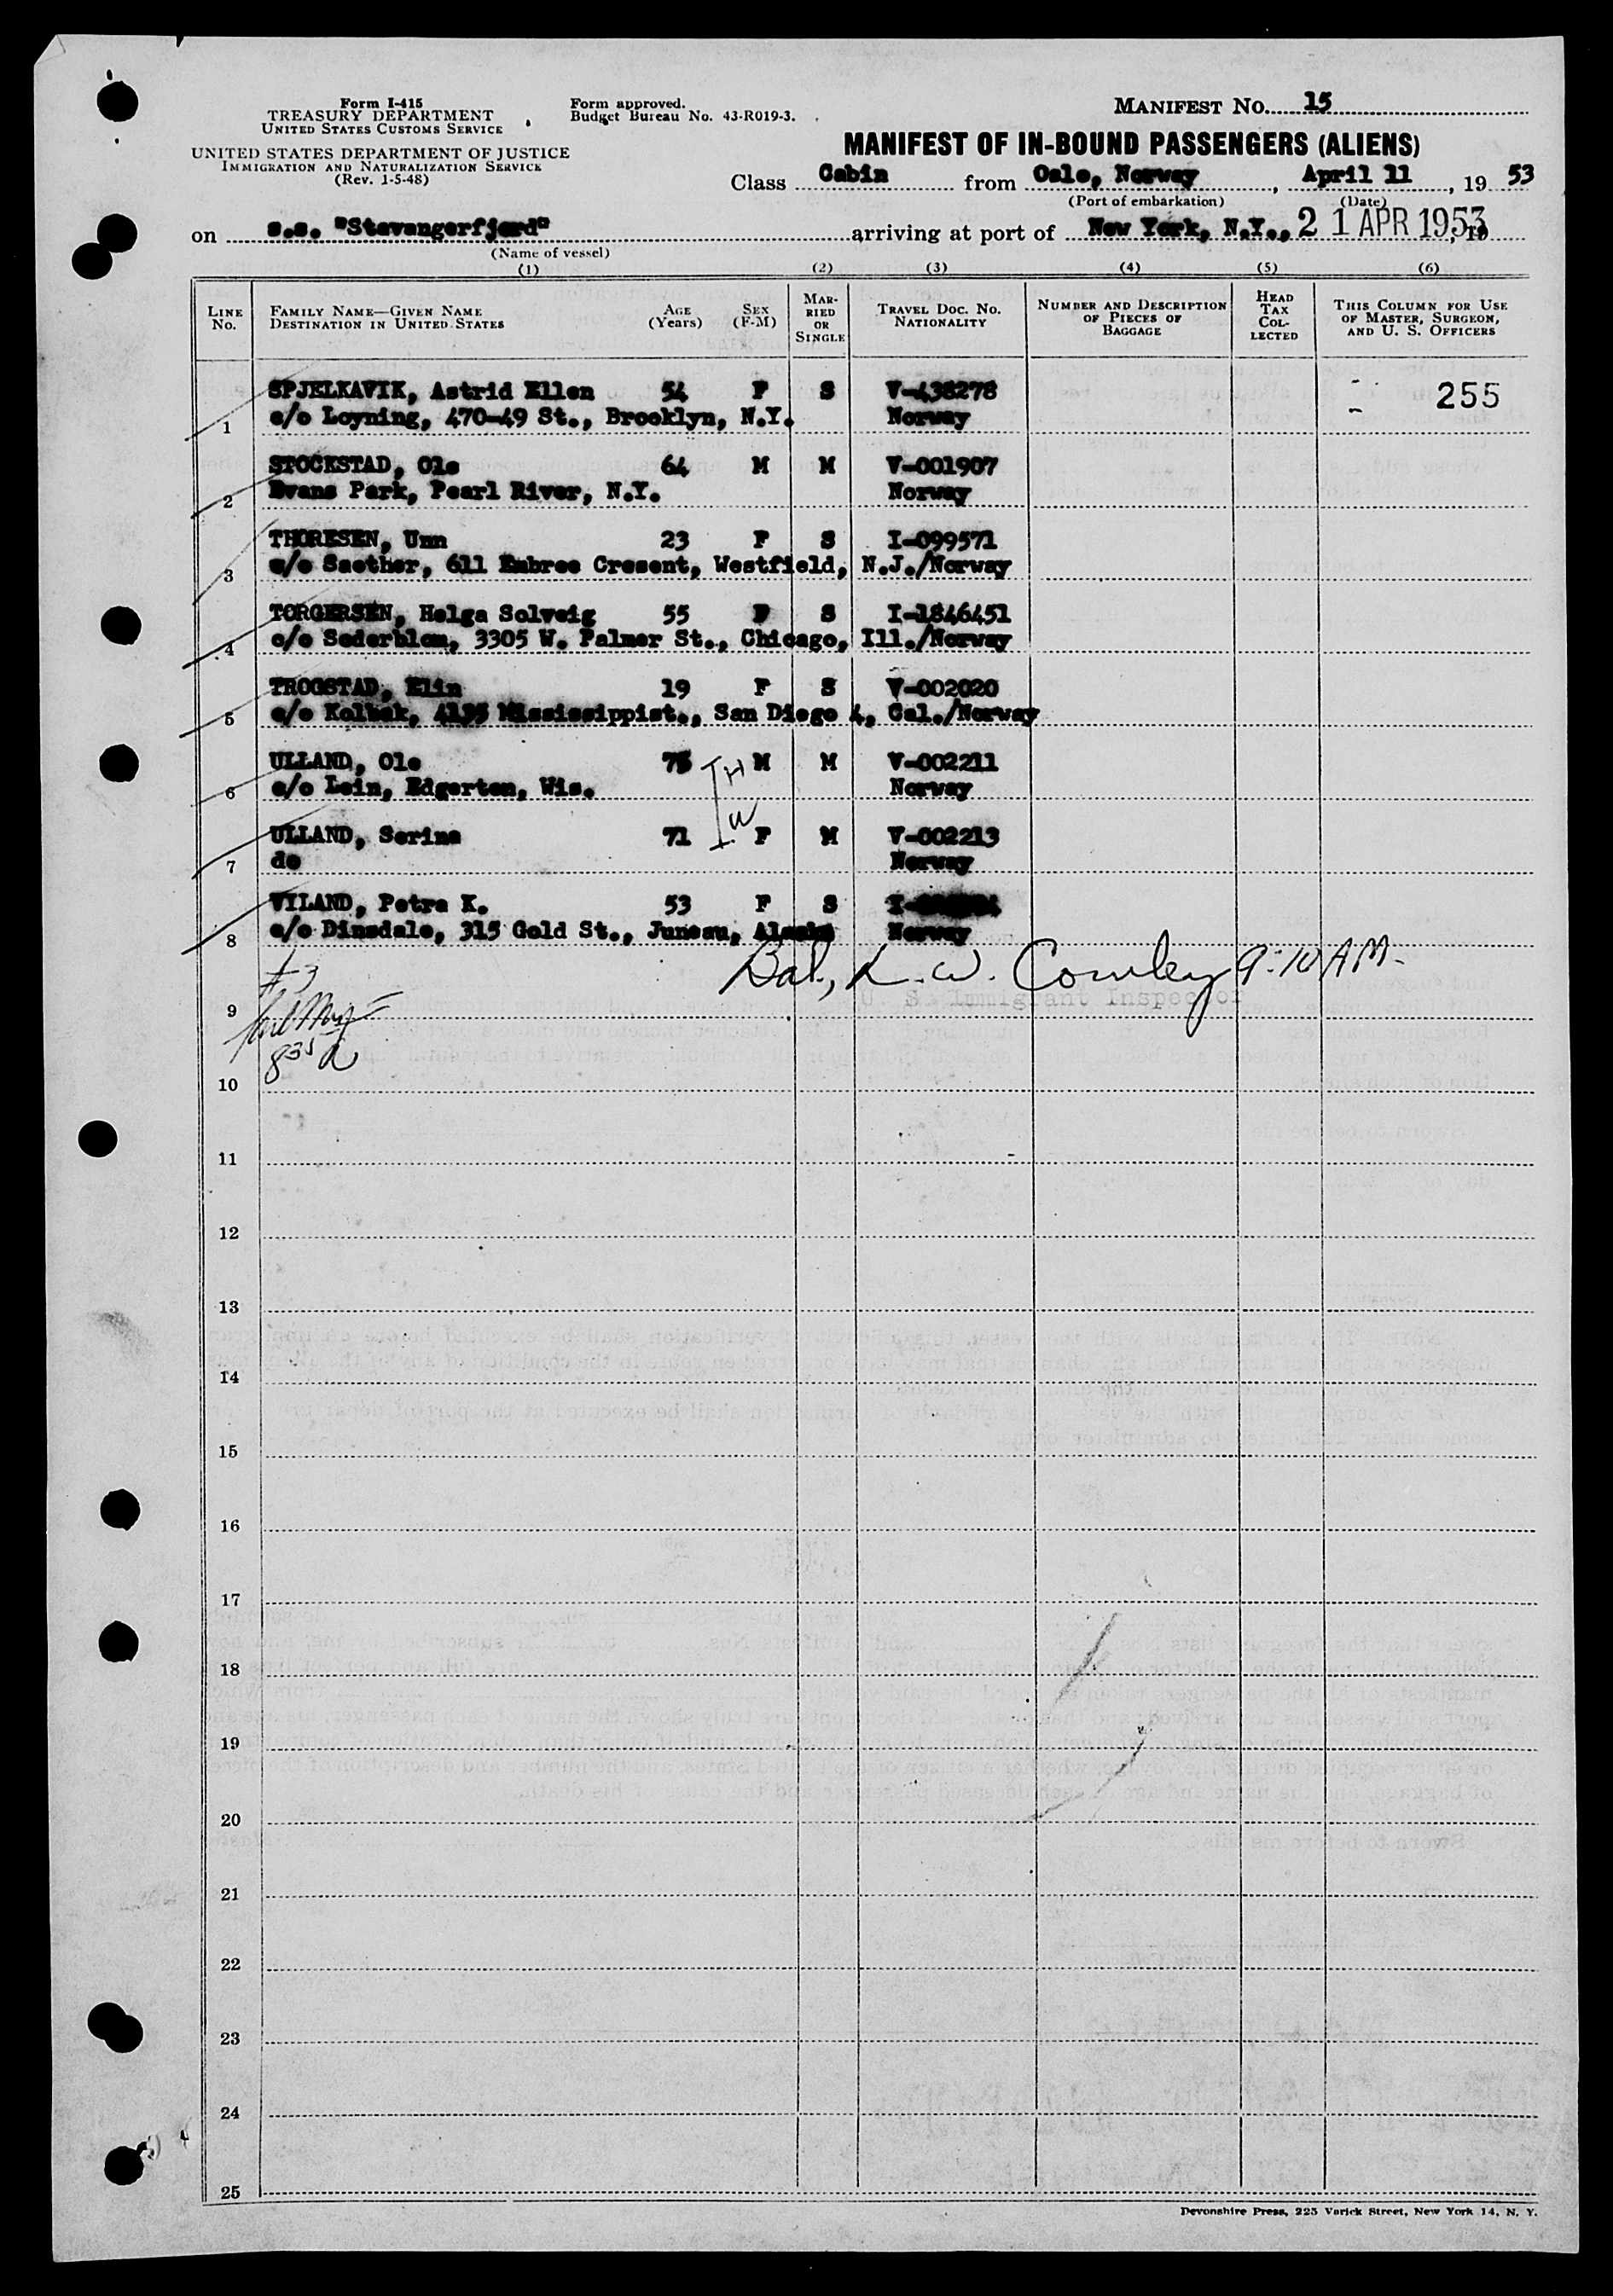 Form I-415
TREASURY DEPARTMENT
UNITED STATES CUSTOMS SERVICE
UNITED STATES DEPARTMENT OF JUSTICE
IMMIGRATION AND NATURALIZATION SERVICE
(Rev. 1-5-48)
Form approved.
Budget Bureau No. 43-R019-3.
MANIFEST NO. 15
MANIFEST OF IN-BOUND PASSENGERS (ALIENS)
Class Cabin from Oslo, Norway, April 11, 19 53
(Port of embarkation) (Date)
on s.s. "Stavangerfjord" arriving at port of New York, N.Y., 21 APR 1953
(Name of vessel)
(1) (2) (3) (4) (5) (6)
LINE No. FAMILY NAME—GIVEN NAME DESTINATION IN UNITED STATES AGE (Years) SEX (F-M) MARRIED OR SINGLE TRAVEL DOC. NO. NATIONALITY NUMBER AND DESCRIPTION OF PIECES OF BAGGAGE HEAD TAX COLLECTED THIS COLUMN FOR USE OF MASTER, SURGEON, AND U. S. OFFICERS
SPJELKAVIK, Astrid Ellen 54 F S V-438278 255
1 c/o Loyning, 470-49 St., Brooklyn, N.Y. Norway
STOCKSTAD, Ole 64 M M V-001907
2 Evans Park, Pearl River, N.Y. Norway
THORESEN, Unn 23 F S I-099571
3 c/o Saether, 611 Embree Cresent, Westfield, N.J./Norway
TORGERSEN, Helga Solveig 55 F S I-1846451
4 c/o Soderblom, 3305 W. Palmer St., Chicago, Ill./Norway
TROGSTAD, Elin 19 F S V-002020
5 c/o Kolbak, 4135 Mississippist., San Diego 4, Cal./Norway
ULLAND, Ole 75 H M M V-002211
6 c/o Lein, Edgerton, Wis. Norway
ULLAND, Serina 71 W F M V-002213
7 do Norway
VILAND, Petra K. 53 F S
8 c/o Dinsdale, 315 Gold St., Juneau, Alaska Norway
#3 Bal, L. W. Conley 9:10 AM.
U. S. Immigrant Inspector
9
8 35 a
10
11
12
13
14
15
16
17
18
19
20
21
22
23
24
25
Devonshire Press, 225 Varick Street, New York 14, N. Y.